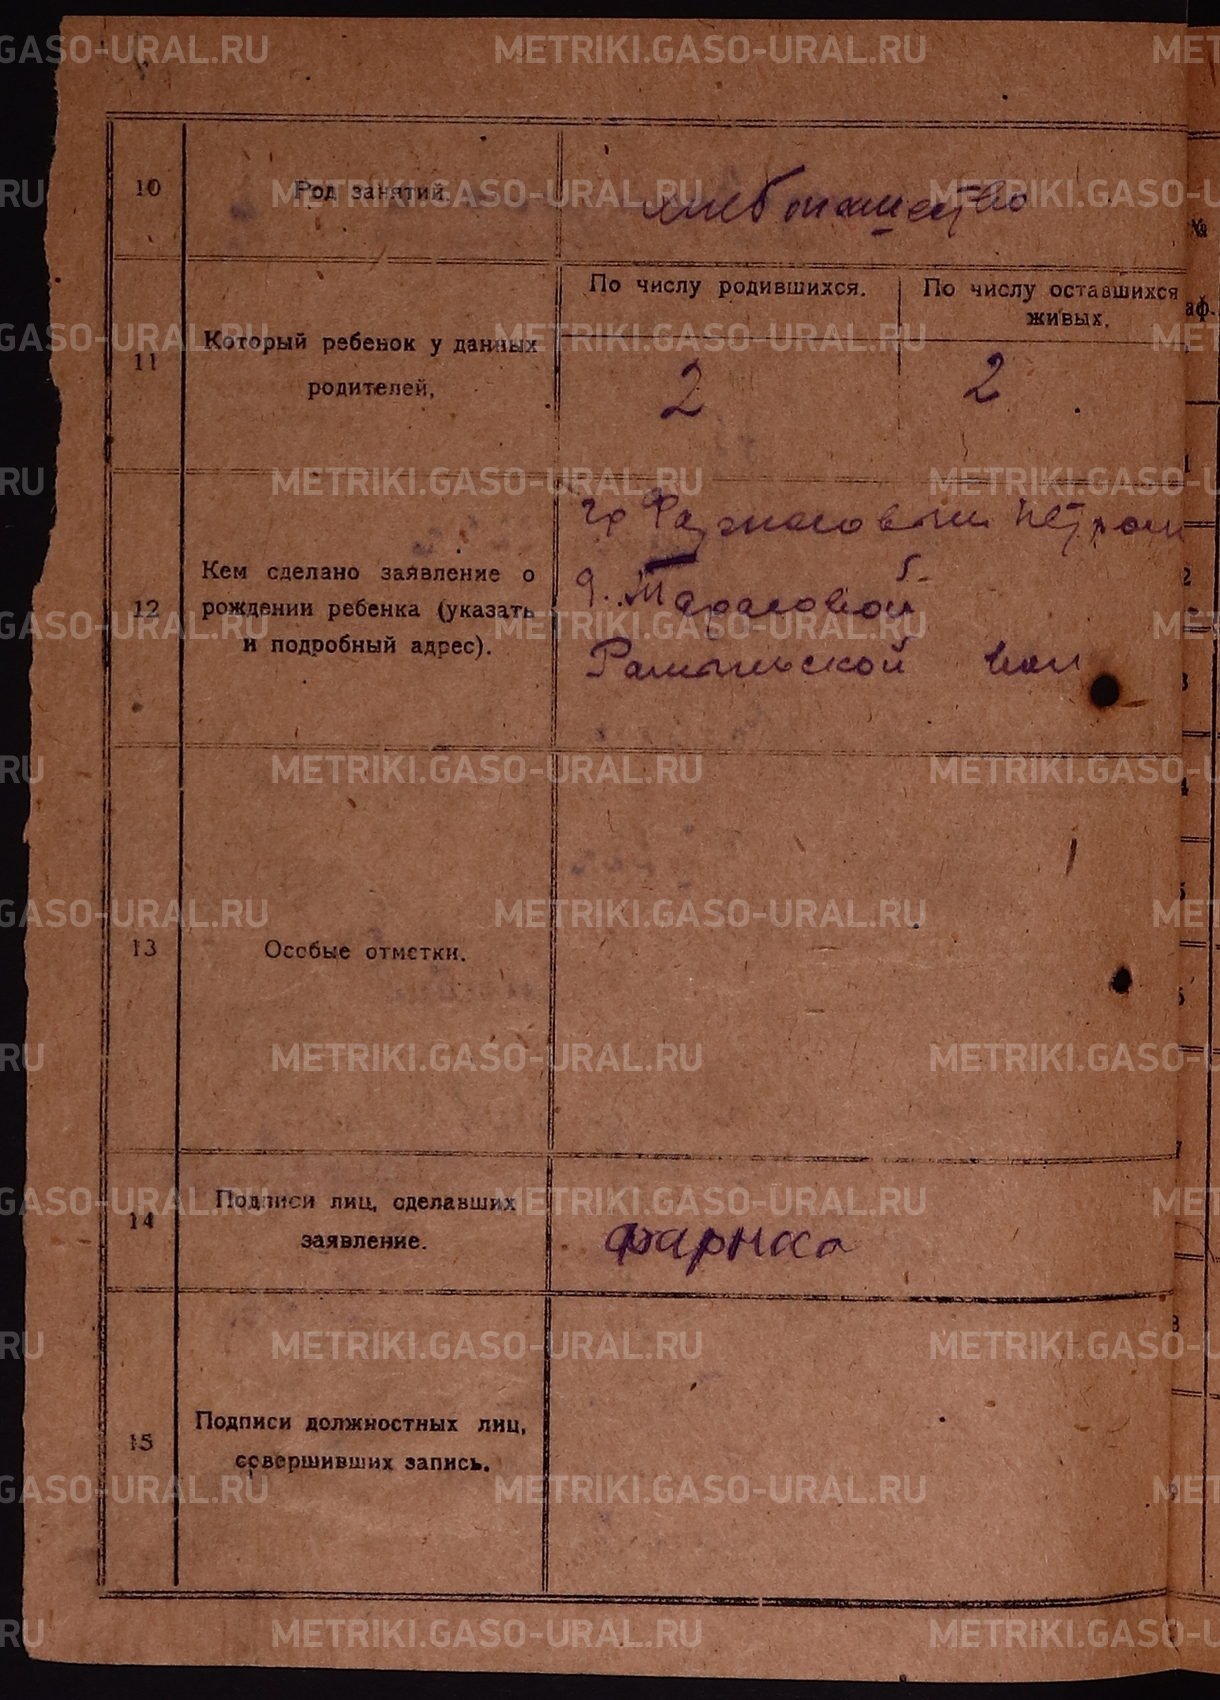 METRIKI.GASO-URAL.RU
10 Род занятий.
11 Который ребенок у данных
родителей,
По числу родившихся.
По числу оставшихся
живых,
2 2
12 Кем сделано заявление о
рождении ребенка (указать
и подробный адрес).
гр Фарносовым Петром
д. Тарасовой
вол
13 Особые отметки.
14 Подписи лиц, сделавших
заявление.
Фарносо
15 Подписи должностных лиц,
совершивших запись.